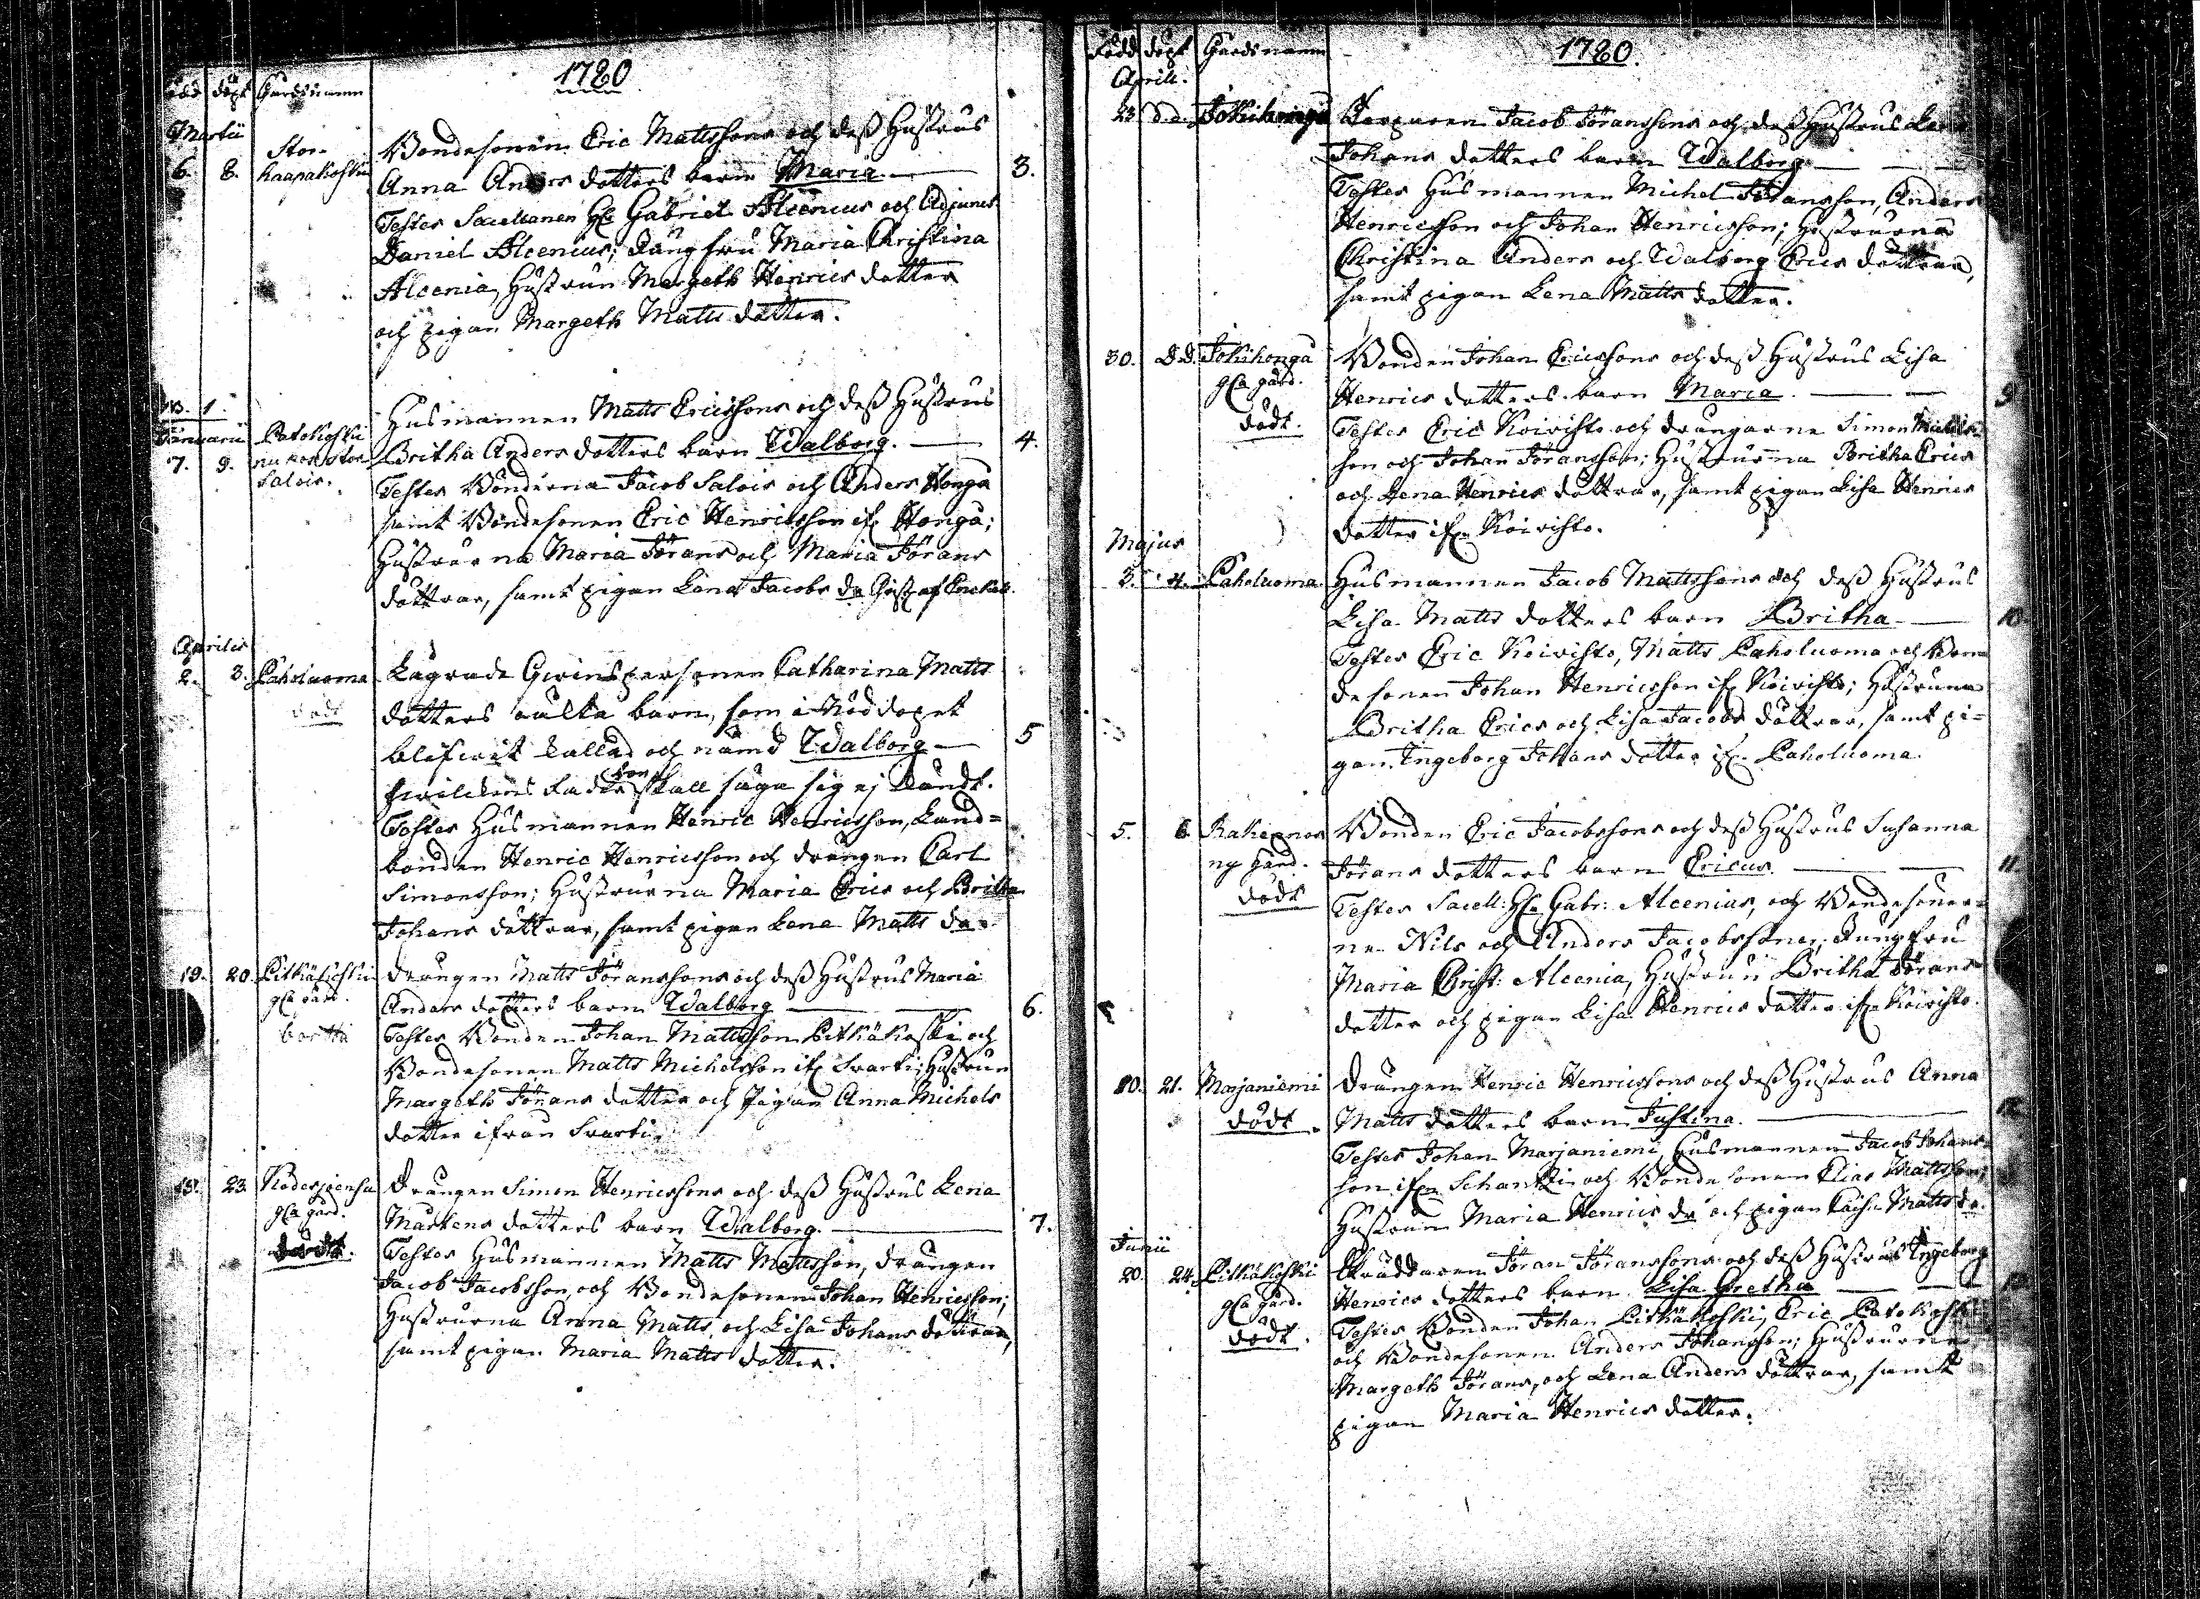 1780
Född döpt Gårdsnamn
Martii
6. 8. Stor-
Kaapakoski
Bondesonen Eric Mattssons och dess Hustrus
Anna Anders dotters barn Maria. — 3.
Testes Sacellanen Hr Gabriel Alcenius och Adjunct
Daniel Alcenius; Jungfru Maria Christina
Alcenia, Hustrun Margeth Henrics dotter
och pigan Margeth Matts dotter.
NB. 1.
Januarii
7. 9. Patokoski
nu kor stor
Salois.
Husmannen Matts Ericssons och dess Hustrus
Britha Anders dotters barn Walborg. — 4.
Testes Bönderna Jacob Salois och Anders Honga
samt Bondesonen Eric Henricsson ifr Honga;
Hustrurna Maria Jörans och Maria Jörans
döttrar, samt pigan Lena Jacobs dr
Aprilis
2. 3. Paholuoma
död
Lägrade Qwinspersonen Catharina Matts
dotters oäkta barn, som i Nöddopet
blifwit kallad och nämd Walborg — 5
hwilckens fader hon skall säga sig ej kändt.
Testes Husmannen Henric Henricsson, Land-
bonden Henric Henricsson och drängen Carl
Simonsson; Hustrurna Maria Erics och Britha
Johans döttrar, samt pigan Lena Matts dr.
19. 20. Pitkäkoski
gla gård.
Drängen Matts Jöranssons och dess Hustrus Maria
Anders dotters barn Walborg — 6.
Testes Bonden Johan Mattsson Pitkäkoski och
Bondesonen Matts Michelsson ifr Svarti; Hustrun
Margeth Jörans dotter och Pigan Anna Michels
dotter ifrån Svarti.
23. Kodesjoensu
gla gård.
Drängen Simon Henricssons och dess Hustrus Lena
Mårtens dotters barn Walborg. — 7.
Testes Husmannen Matts Mattsson, drängen
Jacob Jacobsson, och Bondesonen Johan Henricsson;
Hustrurna Anna Matts, och Lisa Johans döttrar,
samt pigan Maria Matts dotter.
1780.
Född döpt Gårdsnamn
Aprill.
23 d.d. Jokihonga
Torparen Jacob Jöranssons och dess Hustrus Lena
Johans dotters barn Walborg. —
Testes Husmannen Michel Johansson, Anders
Henricsson och Johan Henricsson; Hustrurna
Christina Anders och Walborg Erics döttrar,
samt pigan Lena Matts dotter.
30. d.d. Jokihonga
gla gård.
dödt.
Bonden Johan Ericssons och dess Hustrus Lisa
Henrics dotters barn Maria. — 9
Testes Eric Koivisto och drängarne Simon Michels-
son och Johan Jöransson; Hustrurna Britha Erics
och Lena Henrics döttrar, samt pigan Lisa Henrics
dotter ifrn Koivisto.
Majus
3. 4. Paholuoma
Husmannen Jacob Mattssons och dess Hustrus
Lisa Matts dotters barn Britha — 10
Testes Eric Koivisto, Matts Paholuoma och Bon-
desonen Johan Henricsson ifr Koivisto; Hustrurna
Britha Erics och Lisa Jacobs döttrar, samt pi-
gan Ingeborg Johans dotter ifrn Paholuoma.
5. 6 Rakennos
ny gård.
dödt
Bonden Eric Jacobssons och dess Hustrus Susanna
Jörans dotters barn Ericus. — 11
Testes Sacell: Hr Gabr: Alcenius, och Bondesöner-
na Nils och Anders Jacobssöner; Jungfru
Maria Christ: Alcenia, Hustrun Britha Jörans
dotter och pigan Lisa Henrics dotter ifrn Koivisto.
20. 21. Marjaniemi
dödt.
Drängen Henric Henricssons och dess Hustrus Anna
Matts dotters barn Justina. — 12
Testes Johan Marjaniemi, Husmannen Jacob Johans-
son ifrn Schantzi och Bonde sonen Elias Mattsson;
Hustrun Maria Henrics dr och pigan Caisa Matts dr.
Junii
20. 24. Pitkäkoski
gla gård.
dödt.
Skräddaren Jöran Jöranssons och dess Hustrus Ingeborg
Henrics dotters barn Lisa Gretha —
Testes Bonden Johan Pitkäkoski, Eric Patokoski
och Bondesonen Anders Johansson; Hustrurna
Margeth Jörans, och Lena Anders döttrar, samt
pigan Maria Henrics dotter.